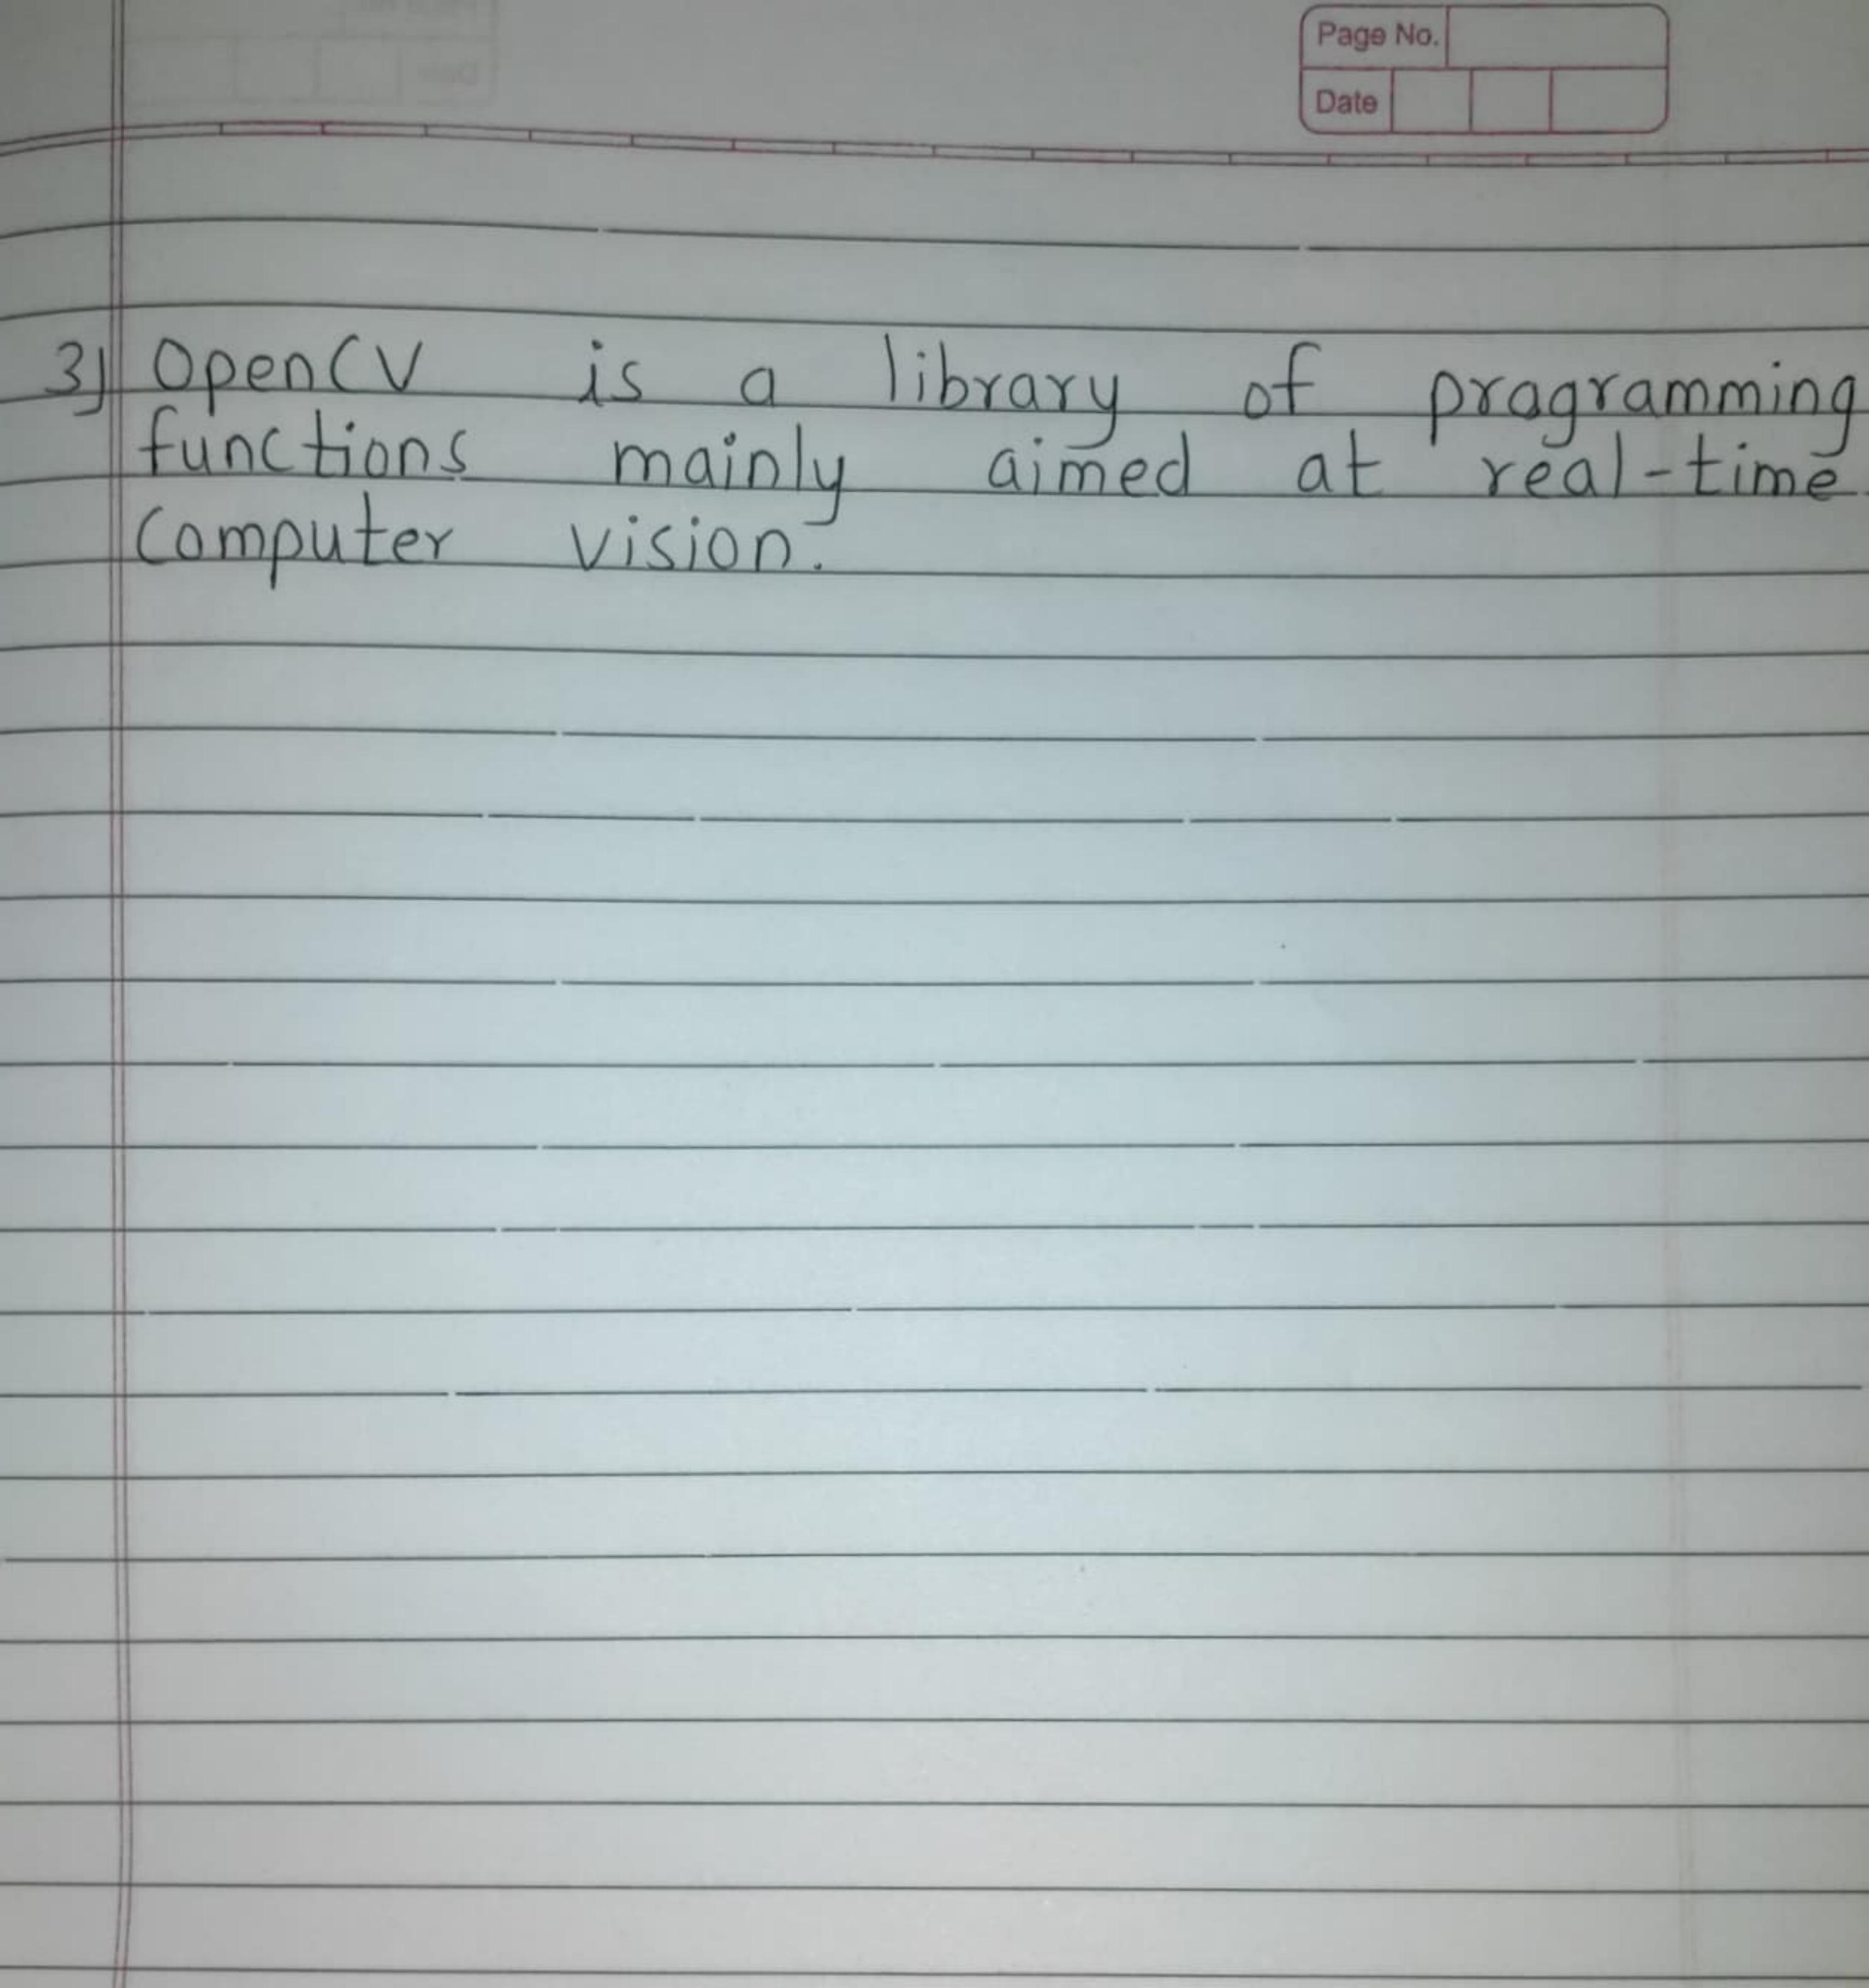 Page No.
Date
3) OpenCV is a library of programming
functions mainly aimed at real-time
Computer vision.